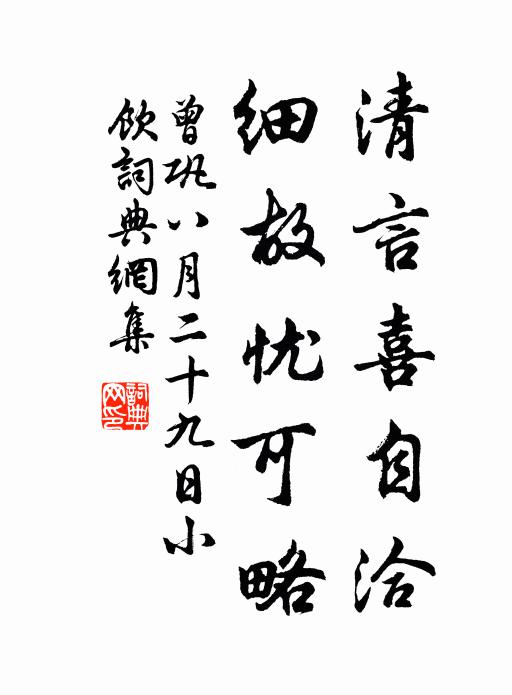 清言喜自洽
细故忧可略
曾巩八月二十九日小
饮詞典網集
詞典
网印